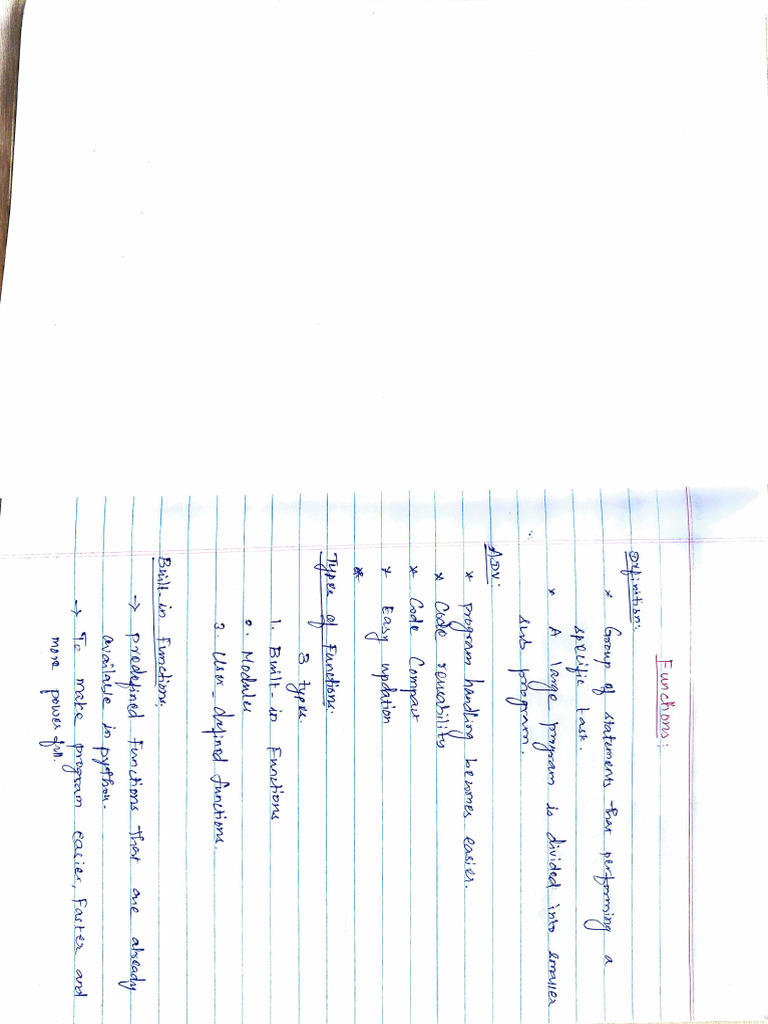 Functions:
Definition:
* Group of statements that performing a
specific task.
* A large program is divided into smaller
sub program.
ADV:
* program handling becomes easier.
* Code reusability
* Code Compact
* Easy updation
*
Types of Functions:
3 types.
1. Built-in Functions
2. Modules
3. User-defined functions.
Built-in Functions:
→ predefined Functions that are already
available in python.
→ To make program easier, Faster and
more powerfull.